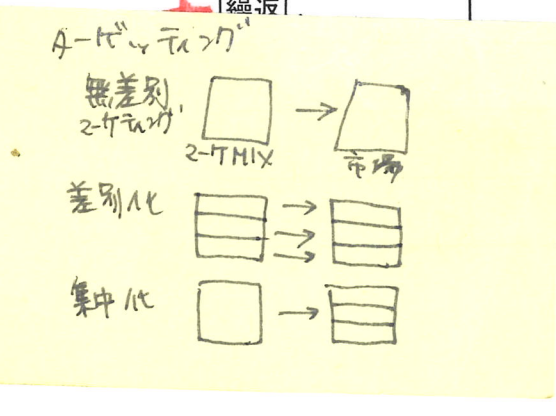 繰返
ターゲッティング
無差別
マーケティング
マーケMIX
市場
差別化
集中化